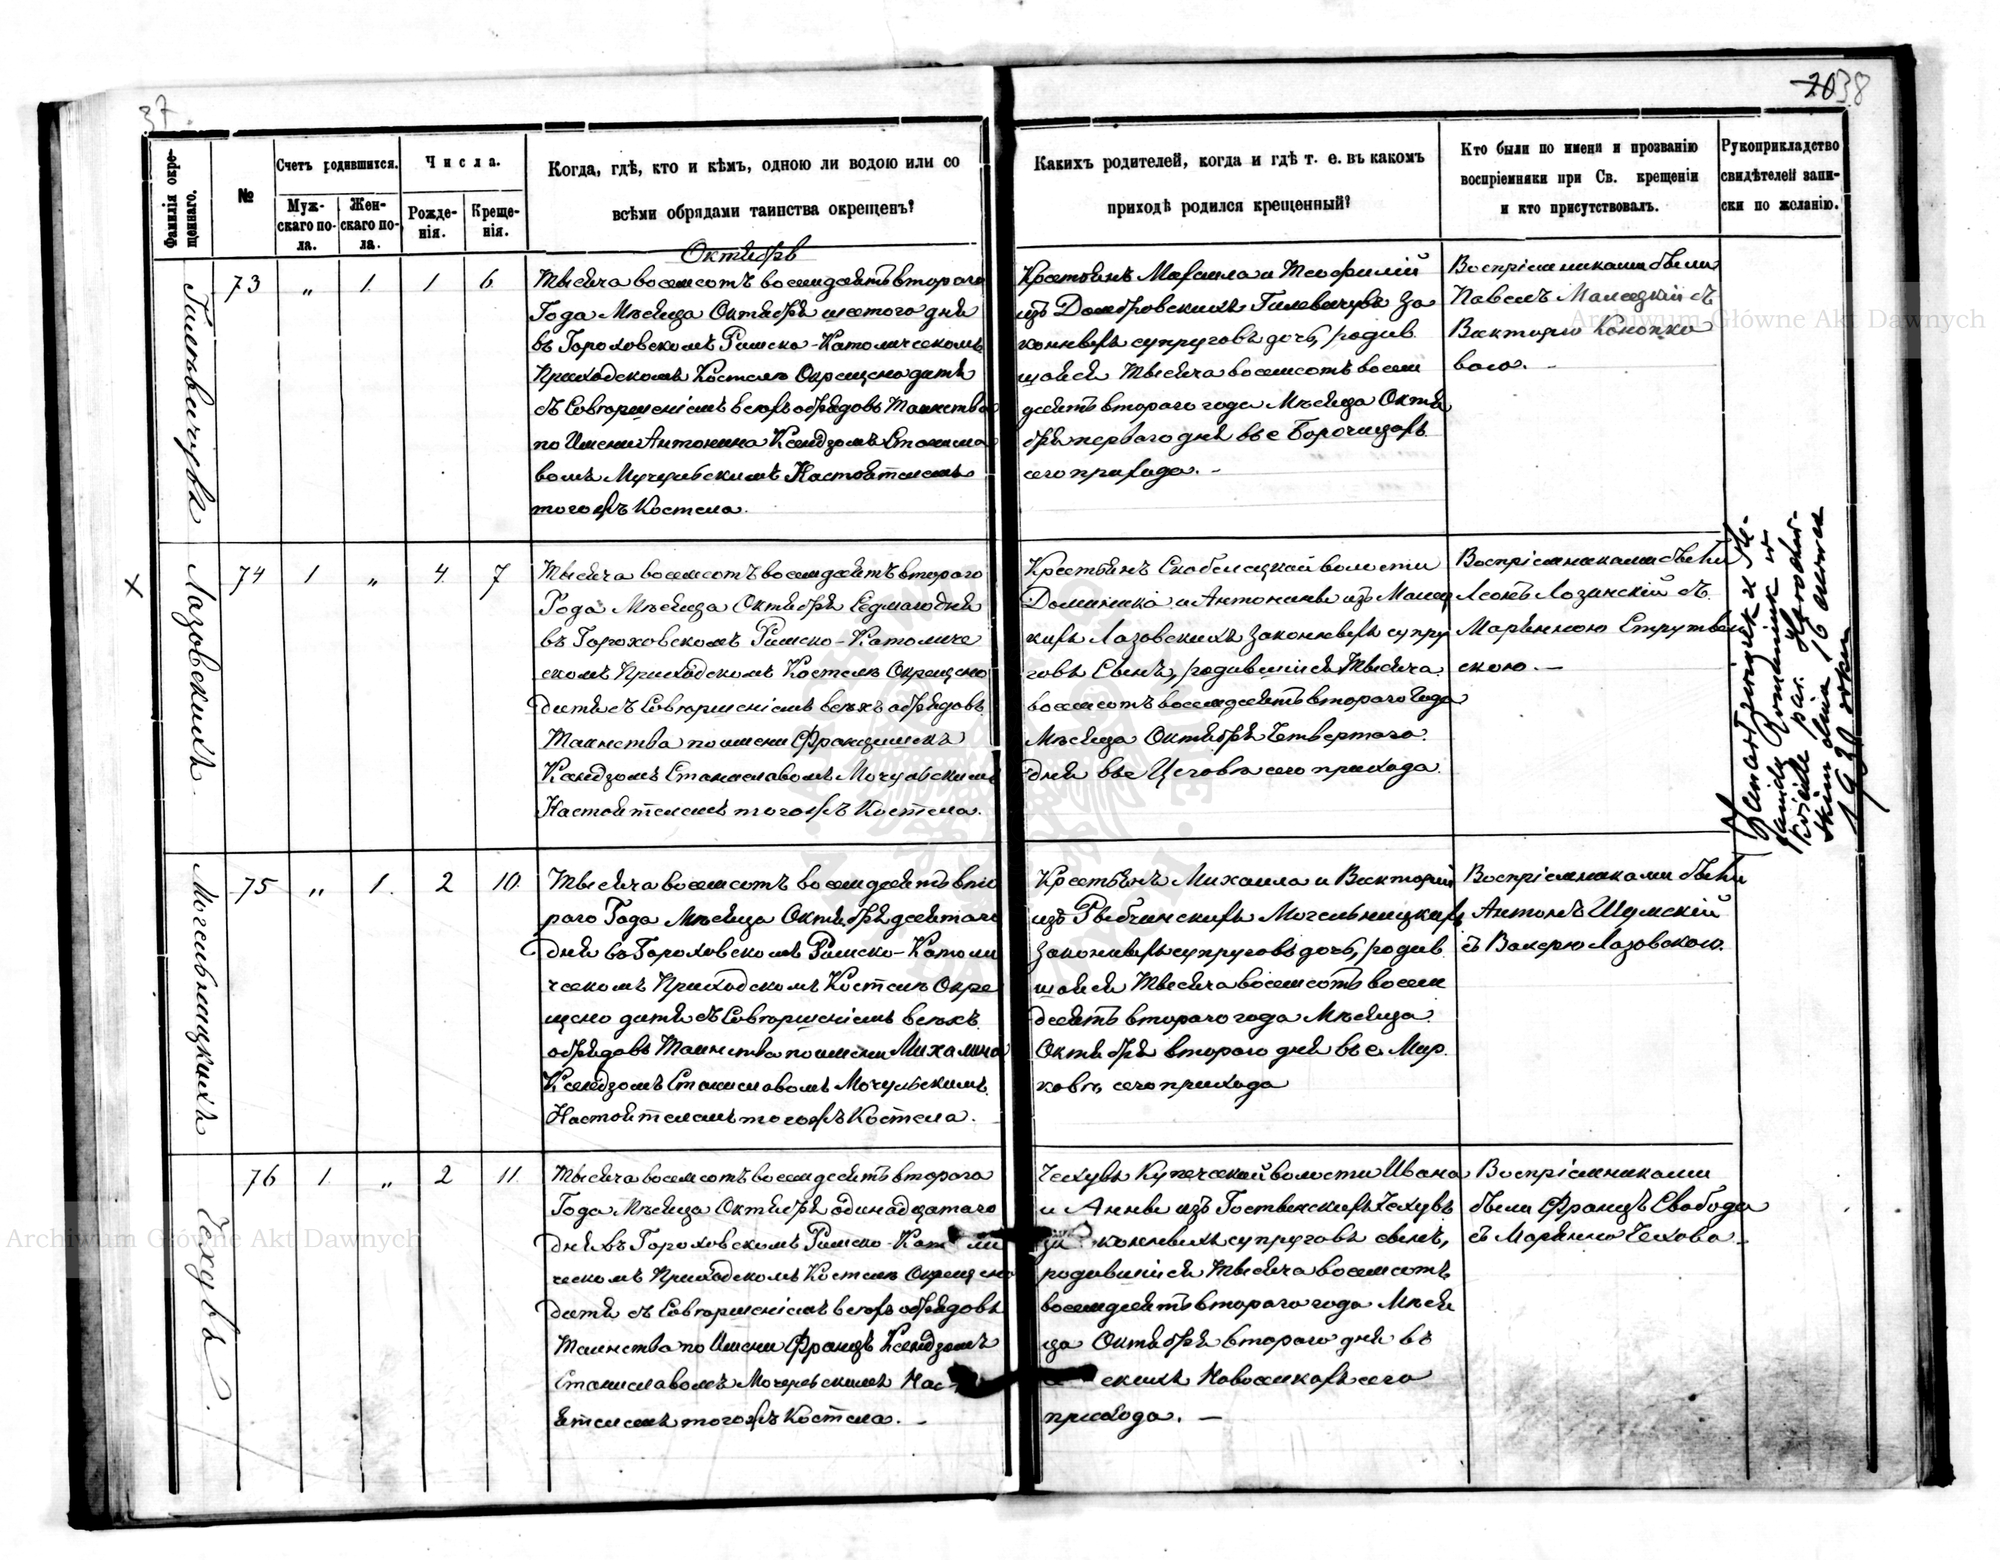 37.
2038
Фамилія окре-
щеннаго.
№
Счетъ родившихся.
Муж-
скаго по-
ла.
Жен-
скаго по-
ла.
Числа.
Рожде-
нія.
Креще-
нія.
Когда, гдѣ, кто и кѣмъ, одною ли водою или со
всѣми обрядами таинства окрещенъ?
Какихъ родителей, когда и гдѣ т. е. въ какомъ
приходѣ родился крещенный?
Кто были по имени и прозванію
воспріемники при Св. крещеніи
и кто присутствовалъ.
Рукоприкладство
свидѣтелей запи-
ски по желанію.
Октябрь
Гилевичувъ
73 „ 1. 1 6
Тысяча восемсотъ восемдесятъ второго
Года Мѣсяца Октября шестого дня
въ Гороховскомъ Римско-Католическомъ
Приходскомъ Костелѣ Окрещено дитя
съ Совершеніемъ всехъ обрядовъ Таинства
по Имени Антонина Ксендзомъ Станисла
вомъ Мочульскимъ Настоятелемъ
тогожъ Костела.
Крестьянъ Михаила и Теофилій
изъ Домбровскихъ Гилевичувъ За
конныхъ супруговъ дочь, родив
шаяся Тысяча восемсотъ восем
десятъ второго года Мѣсяца Октя
бря первого дня въ с Борочицахъ
сего прихода. -
Воспріемниками были
Павелъ Малецкій съ
Викторію Конопко
вою. -
Лазовскихъ.
74 1 „ 4. 7
Тысяча восемсотъ восемдесятъ второго
Года Мѣсяца Октября Седмаго дня
въ Гороховскомъ Римско-Католиче
скомъ Приходскомъ Костелѣ Окрещено
дитя съ Совершеніемъ всѣхъ обрядовъ
Таинства по имени Францишекъ
Ксендзомъ Станиславомъ Мочульскимъ
Настоятелемъ тогожъ Костела.
Крестьянъ Скобелецкой волости
Доминика и Антонины изъ Малец
кихъ Лазовскихъ законныхъ супру
говъ Сынъ, родившійся Тысяча
восемсотъ восемдесятъ второго Года
Мѣсяца Октября Четвертого
дня въ с Цеговѣ сего прихода.
Воспріемниками были
Леонъ Лозинскій съ
Маріянною Струтын
скою. -
1930
Могельницкихъ
75 „ 1. 2 10.
Тысяча восемсотъ восемдесятъ вто
рого Года Мѣсяца Октября десятого
дня въ Гороховскомъ Римско-Католи
ческомъ Приходскомъ Костелѣ Окре
щено дитя съ Совершеніемъ всѣхъ
обрядовъ Таинства по имени Михалина
Ксендзомъ Станиславомъ Мочульскимъ
Настоятелемъ тогожъ Костела.
Крестьянъ Михаила и Викторій
изъ Рыбчинскихъ Могельницкихъ
Законныхъ супруговъ дочь, родив
шаяся Тысяча восемсотъ восем
десятъ второго года Мѣсяца
Октября второго дня въ с. Мир
ковѣ, сего прихода
Воспріемниками были
Антонъ Шумскій
съ Валерію Лазовскою.
Чехувъ.
76 1. „ 2 11.
Тысяча восемсотъ восемдесятъ второго
Года Мѣсяца Октября одинадцатого
дня въ Гороховскомъ Римско-Като ли
ческомъ Приходскомъ Костелѣ Окрещено
дитя съ Совершеніемъ всехъ обрядовъ
Таинства по Имени Францъ Ксендзомъ
Станиславомъ Мочульскимъ Нас
ятелемъ тогожъ Костела. -
Чехувъ Купеческой волости Ивана
и Анны изъ Чехувъ
за конныхъ супруговъ сынъ,
родившійся Тысяча восемсотъ
восемдесятъ второго года Мѣся
ца Октября второго дня въ
скихъ Новоселкахъ сего
прихода. —
Воспріемниками
были Францъ Свобода
съ Маріянно Чехова -
Archiwum Główne Akt Dawnych
Archiwum Główne Akt Dawnych